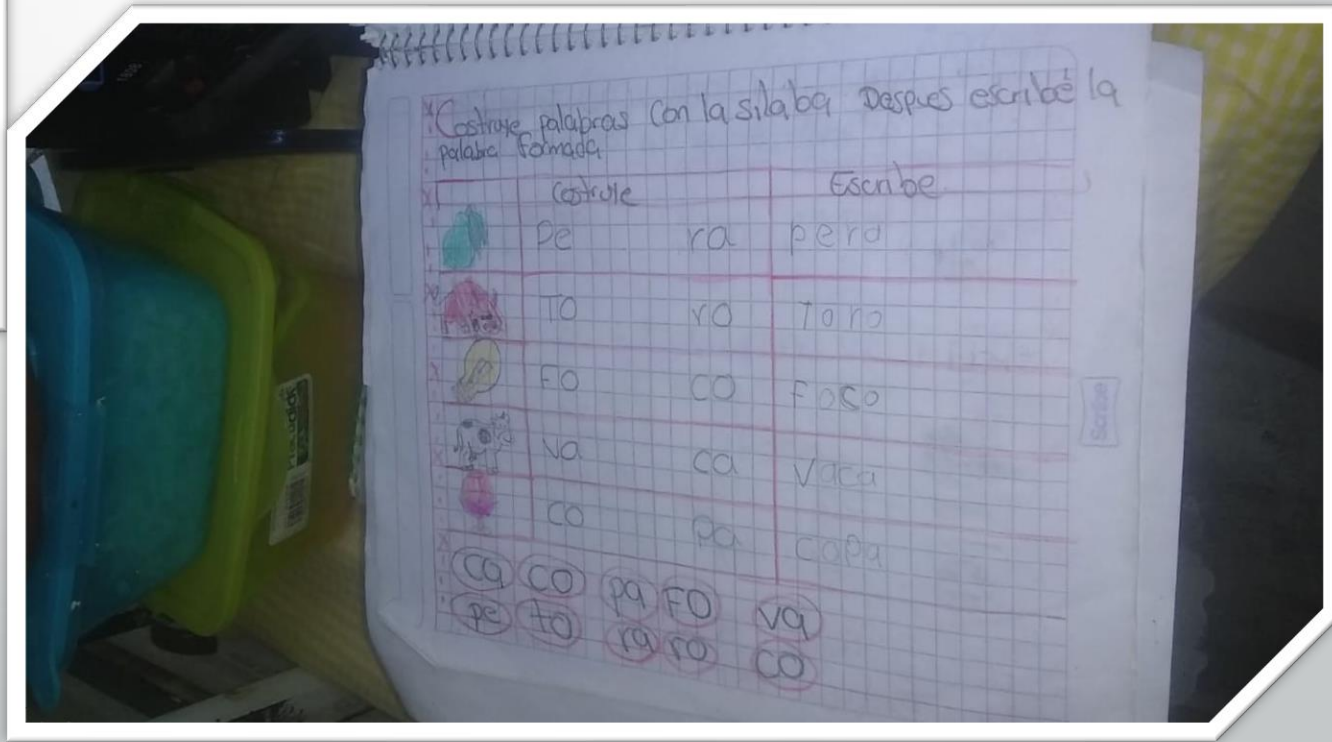 Costruye palabras con la silaba Despues escribe la
palabra formada
Costrule Escribe
Pe ra pera
TO ro Toro
FO CO Foso
va ca vaca
co pa copa
ca co pa FO va
pe to ra ro co
Scribe